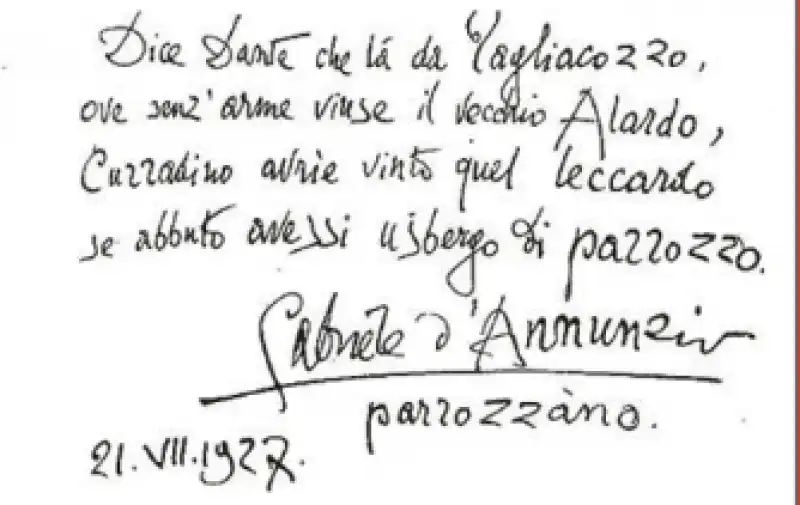 Dice Dante che là da Tagliacozzo,
ove senz'arme vinse il vecchio Alardo,
Curradino avrie vinto quel leccardo
se abbuto avessi usbergo di parrozzo.
Gabriele d'Annunzio
parrozzàno.
21.VII.1927.